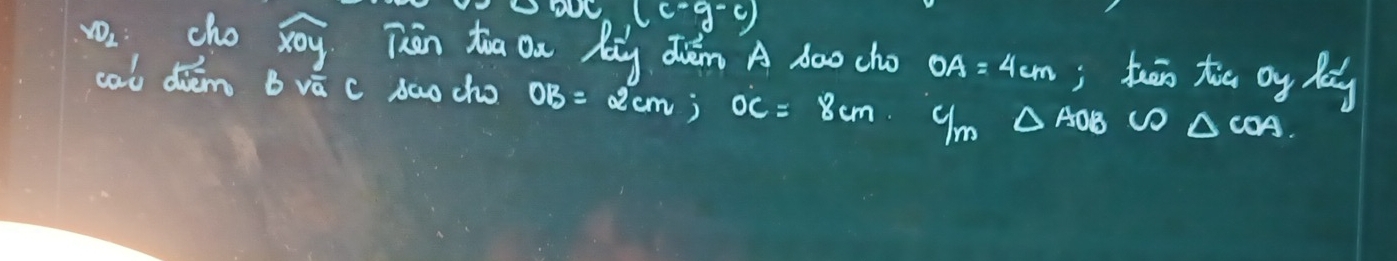 △ BDC (c-g-c)
VD₂: cho x̂oy. Trên tia Ox lấy điểm A sao cho OA = 4cm ; trên tia Oy lấy
các điểm B và C sao cho OB = 2cm ; OC = 8cm. C/m △ AOB ∽ △ COA.